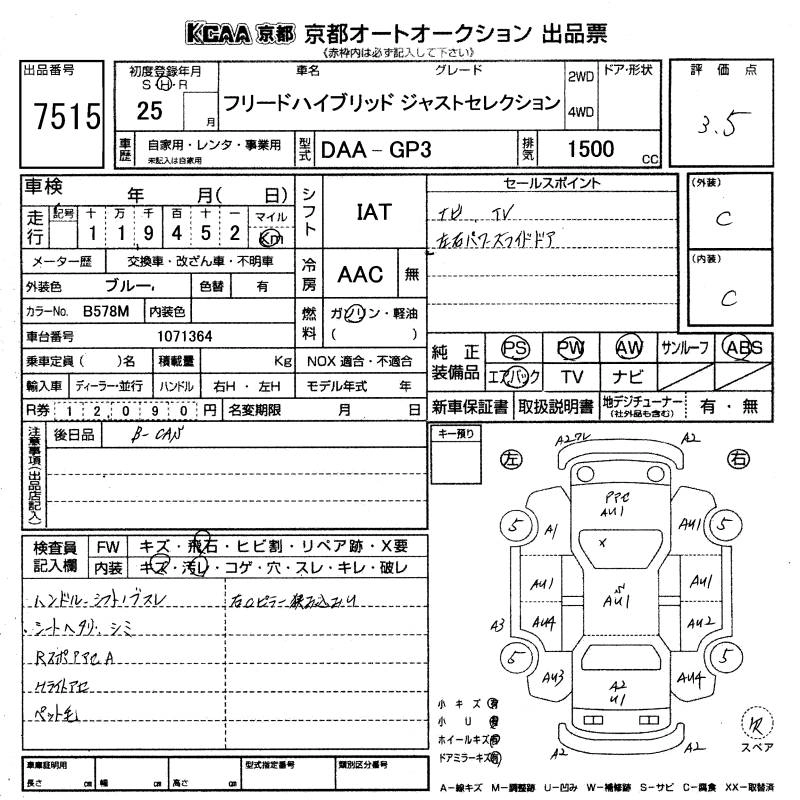 KCAA 京都 京都オートオークション 出品票
《赤枠内は必ず記入して下さい》
出品番号
7515
初度登録年月
S・H・R
25 月
車名 グレード
フリードハイブリッド ジャストセレクション
2WD
4WD
ドア・形状
評価点
3.5
車歴
自家用・レンタ・事業用
未記入は自家用
型式
DAA-GP3
排気
1500 CC
車検 年 月( 日)
走行
記号 十 万 千 百 十 一 マイル
1 1 9 4 5 2 Km
メーター歴 交換車・改ざん車・不明車
外装色 ブルー 色替 有
カラーNo. B578M 内装色
車台番号 1071364
乗車定員( )名 積載量 Kg
輸入車 ディーラー・並行 ハンドル 右H・左H
R券 12090円 名変期限 月 日
シフト IAT
冷房 AAC 無
燃料 ガソリン・軽油
( )
NOX 適合・不適合
モデル年式 年
セールスポイント
ナビ、TV
左右パワースライドドア
(外装)
C
(内装)
C
純正装備品
PS PW AW サンルーフ ABS
エアバック TV ナビ
新車保証書 取扱説明書 地デジチューナー(社外品も含む) 有・無
注意事項(出品店記入)
後日品 B-CAN
キー預り
検査員記入欄
FW キズ・飛石・ヒビ割・リペア跡・X要
内装 キズ・汚レ・コゲ・穴・スレ・キレ・破レ
ハンドル、シフトノブスレ
シートヘタリ、シミ
Hライトアセ
ペット毛
左 右
A2 A2
AU1
5 A1 AU1 5
X
AU1 AU1 AU1
A3 AU4 AU2
5 AU3 AU4 5
A2
U1
A2 A2
小キズ 有
小U
ホイールキズ
ドアミラーキズ
スペア
車庫証明用
長さ cm 幅 cm 高さ cm
型式指定番号
類別区分番号
A-線キズ M-調整跡 U-凹み W-補修跡 S-サビ C-腐食 XX-取替済